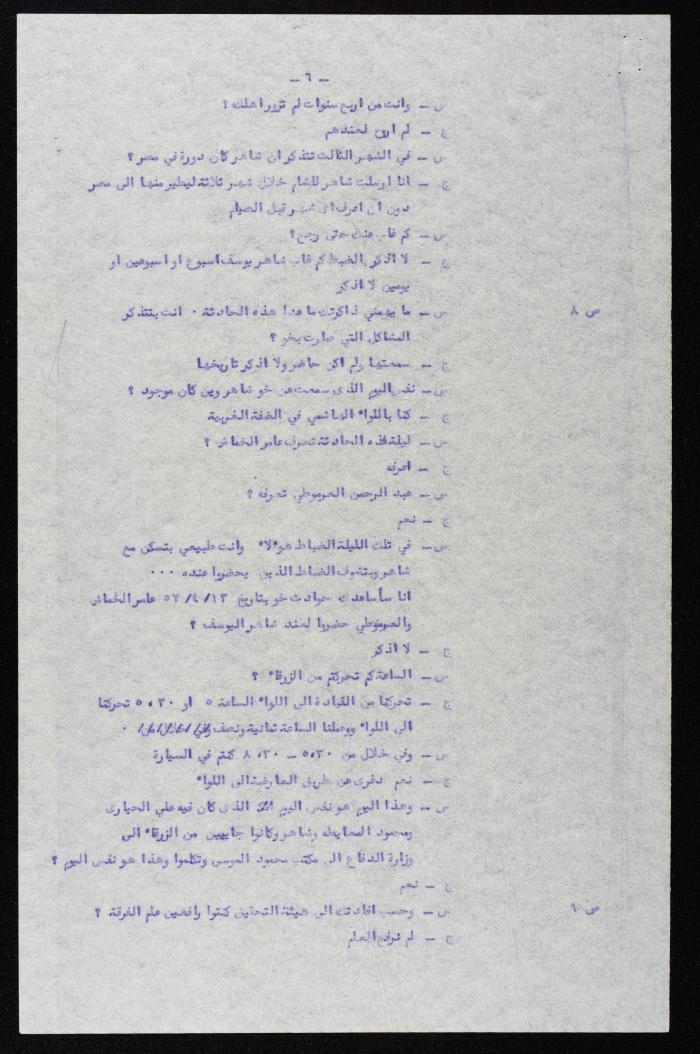 - ٦ -
س - وانت من اربع سنوات لم تزور اهلك ؟
ج - لم اروح لعندهم
س - في الشهر الثالث تتذكر ان شاهر كان دورة في مصر ؟
ج - انا ارسلت شاهر للشام خلال شهر ثلاثة ليطير منها الى مصر
دون ان اعرف اى شهر قبل الصيام
س - كم غاب عنك حتى رجع ؟
ج - لا اذكر بالضبط كم غاب شاهر يوسف اسبوع او اسبوعين او
يومين لا اذكر
ص ٨
س - ما يهمني ذاكرتك ما عدا هذه الحادثة . انت بتتذكر
المشاكل التي صارت بخو ؟
ج - سمعتها ولم اكن حاضر ولا اذكر تاريخها
س - نفس اليوم الذى سمعت عن خو شاهر وين كان موجود ؟
ج - كنا باللواء الهاشمي في الضفة الغربية
س - ليلة هذه الحادثة تعرف عامر الخماش ؟
ج - اعرفه
س - عبد الرحمن العرموطي تعرفه ؟
ج - نعم
س - في تلك الليلة الضباط هؤلاء وانت طبيعي بتسكن مع
شاهر وبتشوف الضباط الذين يحضروا عنده ...
انا سأساعدك حوادث خو بتاريخ ٥٧/٤/١٣ عامر الخماش
والعرموطي حضروا لعند شاهر اليوسف ؟
ج - لا اذكر
س - الساعة كم تحركتم من الزرقاء ؟
ج - تحركنا من القيادة الى اللواء الساعة ٥ او ٥،٣٠ تحركنا
الى اللواء ووصلنا الساعة ثمانية ونصف .
س - وفي خلال من ٥،٣٠ - ٨،٣٠ كنتم في السيارة
ج - نعم دغرى عن طريق العارضة الى اللواء
س - وهذا اليوم هو نفس اليوم الذى كان فيه علي الحيارى
ومحمود المعايطه وشاهر وكانوا جايبين من الزرقاء الى
وزارة الدفاع الى مكتب محمود الموسى وتكلموا وهذا هو نفس اليوم ؟
ج - نعم
ص ٩
س - وحسب افادتك الى هيئة التحقيق كنتوا رافعين علم الفرقة ؟
ج - لم نرفع العلم